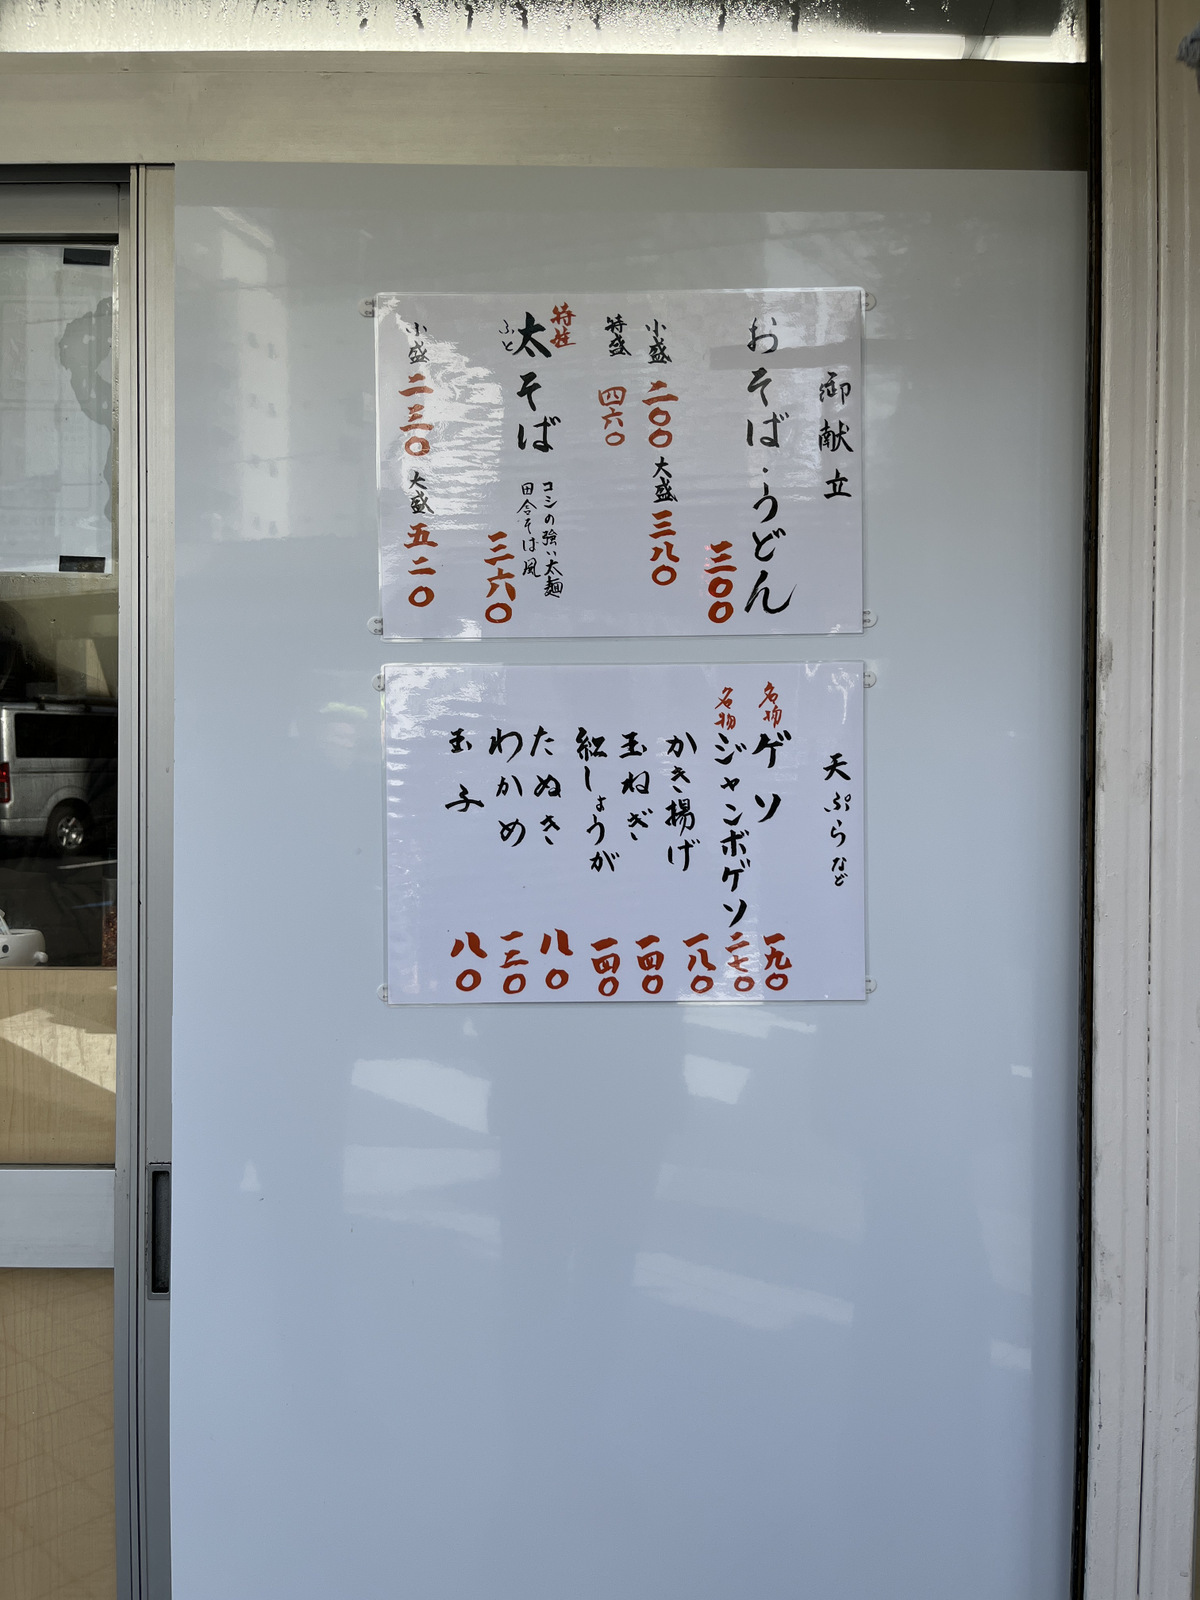 御献立
おそば・うどん 三〇〇
小盛 二〇〇 大盛 三八〇
特盛 四六〇
特製
太そば 三六〇
ふと
コシの強い太麺
田舎そば風
小盛 二三〇 大盛 五二〇
天ぷらなど
名物 ゲソ 一九〇
名物 ジャンボゲソ 二七〇
かき揚げ 一八〇
玉ねぎ 一四〇
紅しょうが 一四〇
たぬき 八〇
わかめ 一三〇
玉子 八〇